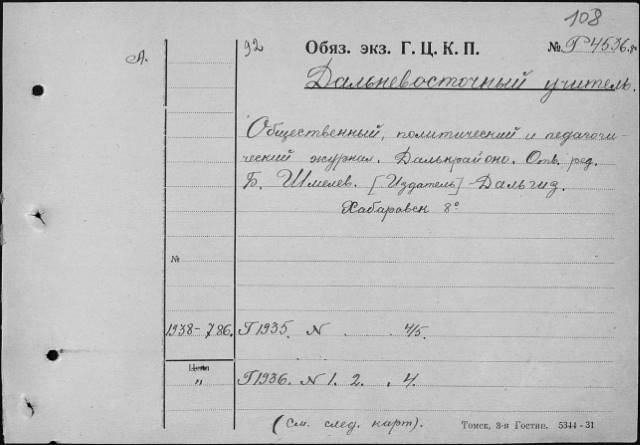 108
А. 92 Обяз. экз. Г. Ц. К. П. № Г 4536
Дальневосточный учитель.
Общественный, политический и педагоги-
ческий журнал. Далькрайоно. Отв. ред.
Б. Шмелев. [Издатель] - Дальгиз.
Хабаровск 8°
№
1938-786. Г 1935. N . . 4/5.
Цена
" Г 1936. N 1. 2. . 4.
(См. след. карт). Томск, 3-я Гостип. 5344-31